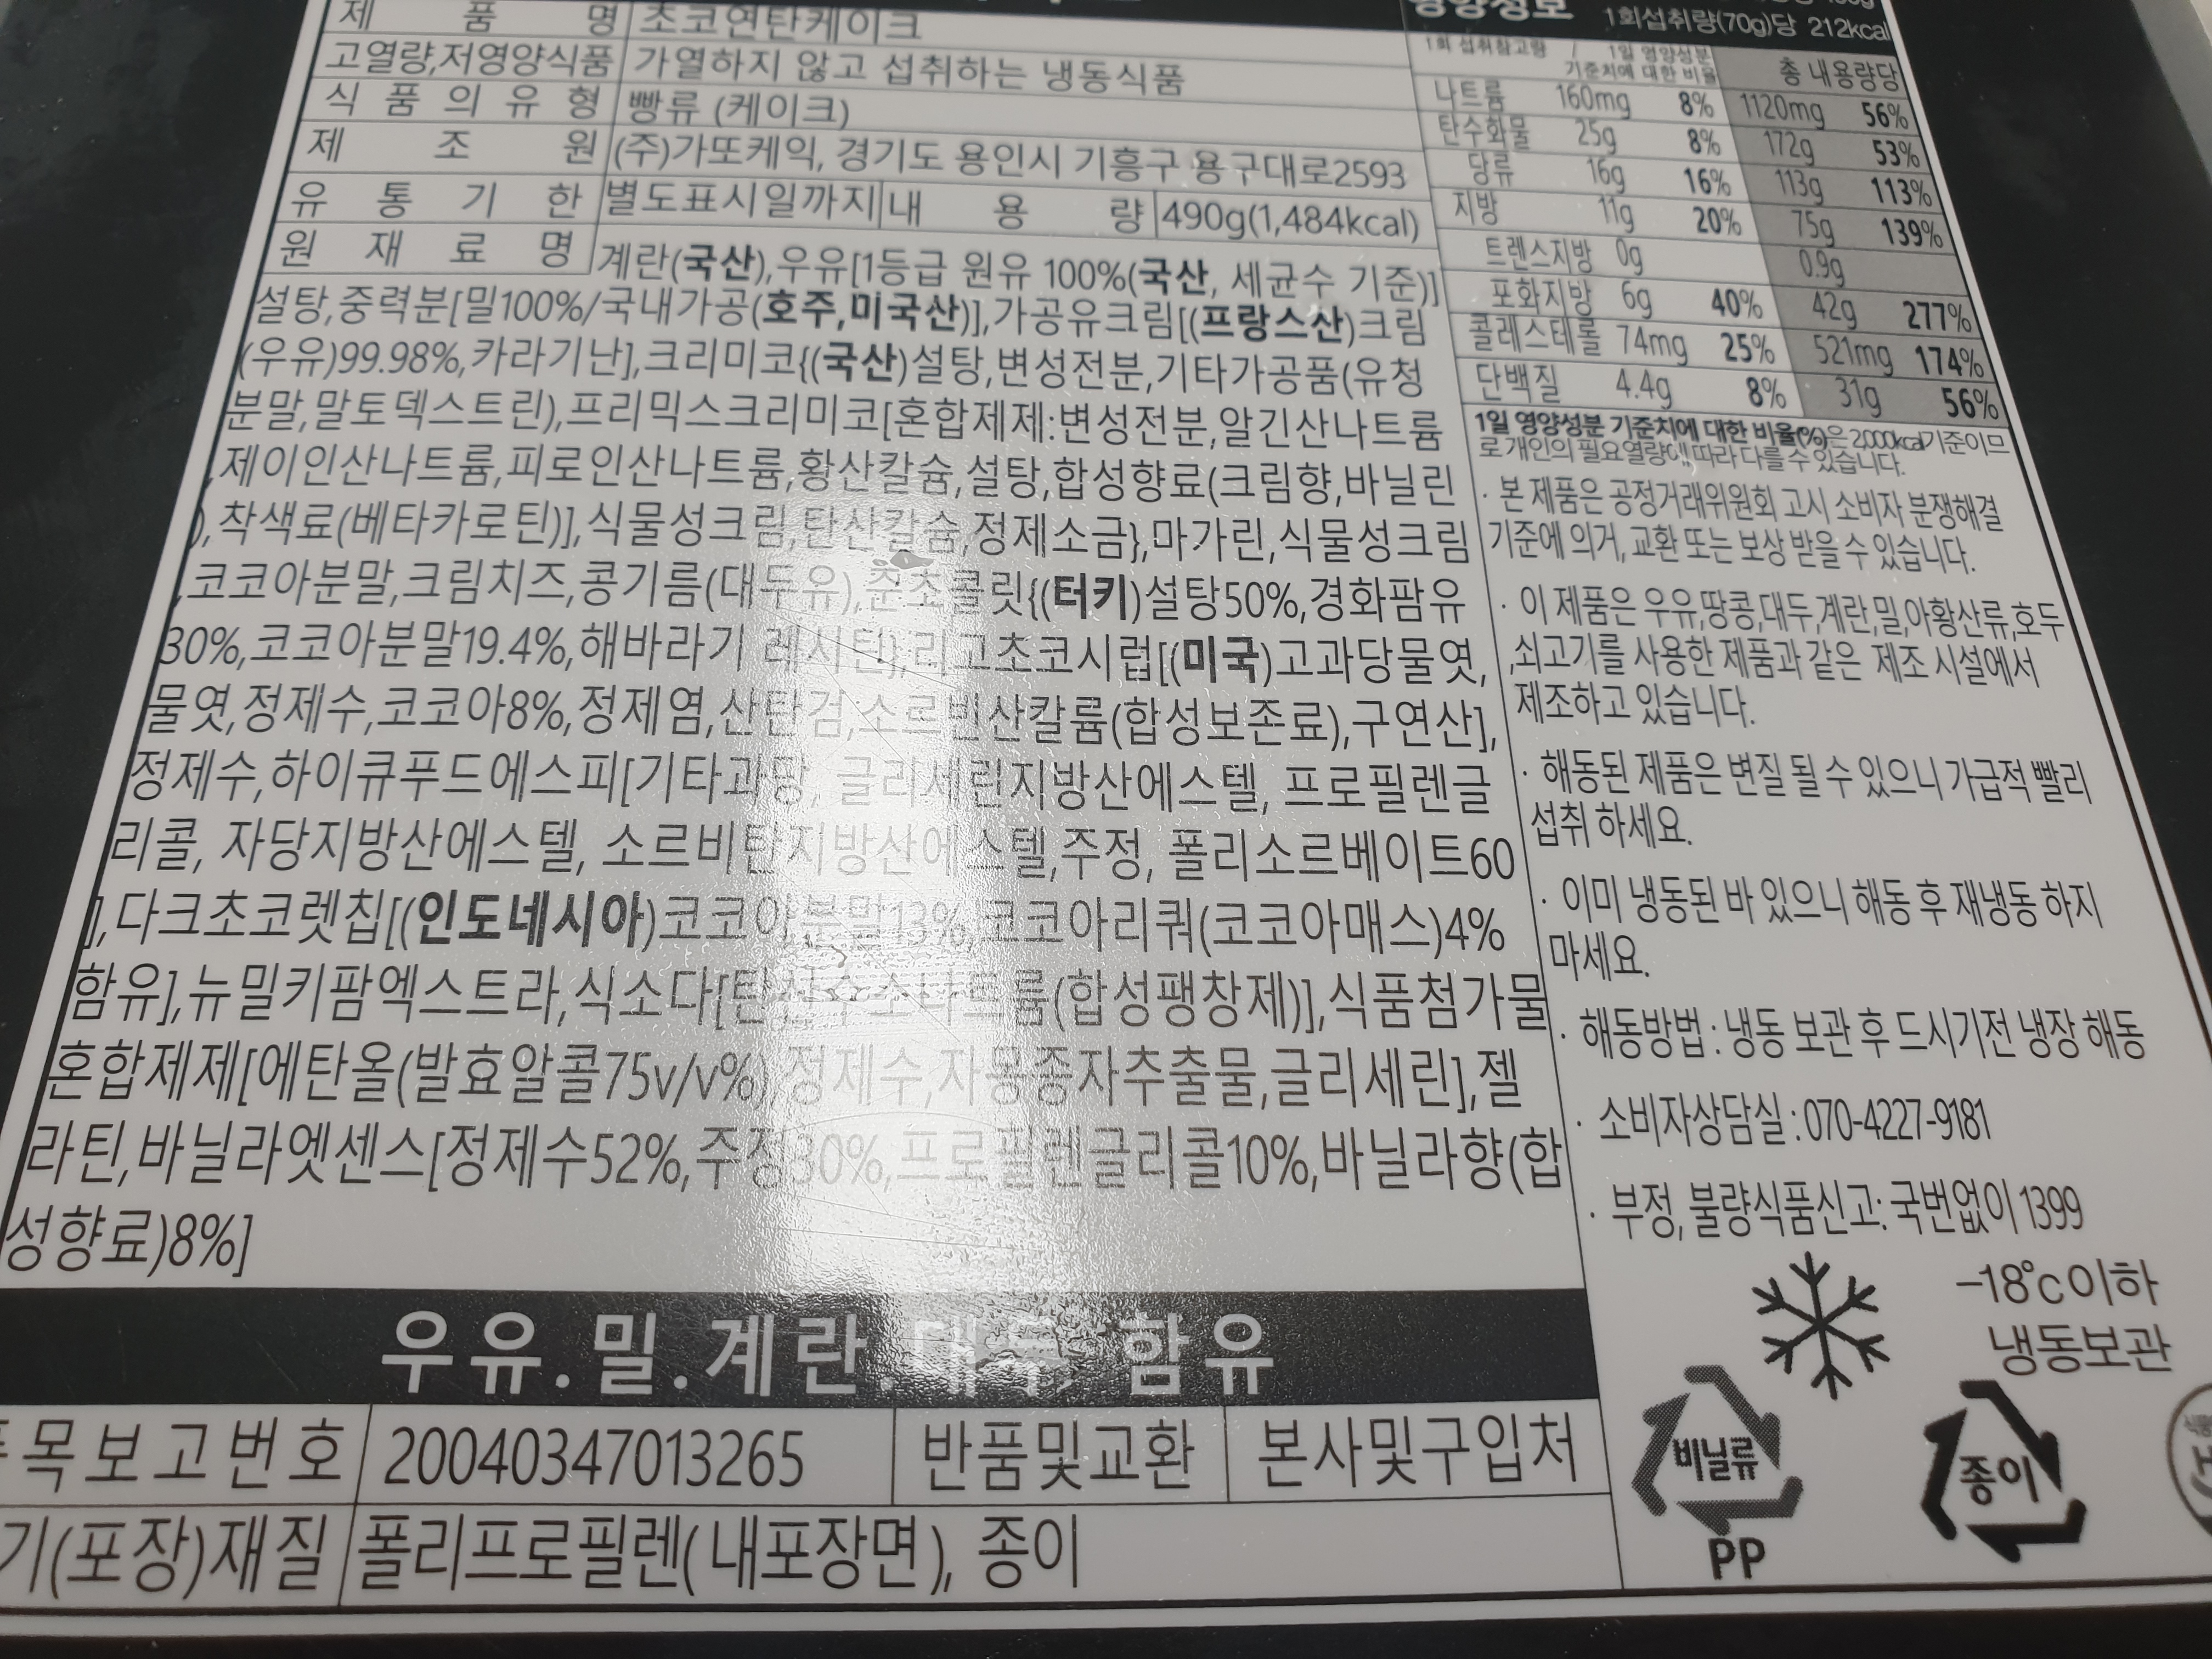 제 품 명 초코연탄케이크
고열량,저영양식품 가열하지 않고 섭취하는 냉동식품
식 품 의 유 형 빵류 (케이크)
제 조 원 (주)가또케익, 경기도 용인시 기흥구 용구대로2593
유 통 기 한 별도표시일까지 내 용 량 490g(1,484kcal)
원 재 료 명 계란(국산),우유[1등급 원유 100%(국산, 세균수 기준)]
설탕,중력분[밀100%/국내가공(호주,미국산)],가공유크림[(프랑스산)크림
(우유)99.98%,카라기난],크리미코{(국산)설탕,변성전분,기타가공품(유청
분말,말토덱스트린),프리믹스크리미코[혼합제제:변성전분,알긴산나트륨
,제이인산나트륨,피로인산나트륨,황산칼슘,설탕,합성향료(크림향,바닐린
),착색료(베타카로틴)],식물성크림,탄산칼슘,정제소금},마가린,식물성크림
,코코아분말,크림치즈,콩기름(대두유),준초콜릿{(터키)설탕50%,경화팜유
30%,코코아분말19.4%,해바라기 레시틴},리고초코시럽[(미국)고과당물엿,
물엿,정제수,코코아8%,정제염,산탄검,소르빈산칼륨(합성보존료),구연산],
정제수,하이큐푸드에스피[기타과당, 글리세린지방산에스텔, 프로필렌글
리콜, 자당지방산에스텔, 소르비탄지방산에스텔,주정, 폴리소르베이트60
],다크초코렛칩[(인도네시아)코코아분말13%,코코아리쿼(코코아매스)4%
함유],뉴밀키팜엑스트라,식소다[탄산수소나트륨(합성팽창제)],식품첨가물
혼합제제[에탄올(발효알콜75v/v%),정제수,자몽종자추출물,글리세린],젤
라틴,바닐라엣센스[정제수52%,주정30%,프로필렌글리콜10%,바닐라향(합
성향료)8%]
우유.밀.계란.대두 함유
목보고번호 20040347013265 반품및교환 본사및구입처
기(포장)재질 폴리프로필렌(내포장면), 종이
영양정보
1회섭취량(70g)당 212kcal
1회 섭취참고량 / 1일 영양성분 기준치에 대한 비율 총 내용량당
나트륨 160mg 8% 1120mg 56%
탄수화물 25g 8% 172g 53%
당류 16g 16% 113g 113%
지방 11g 20% 75g 139%
트렌스지방 0g 0.9g
포화지방 6g 40% 42g 277%
콜레스테롤 74mg 25% 521mg 174%
단백질 4.4g 8% 31g 56%
1일 영양성분 기준치에 대한 비율(%)은 2,000kcal기준이므
로 개인의 필요열량에 따라 다를 수 있습니다.
· 본 제품은 공정거래위원회 고시 소비자 분쟁해결
기준에 의거, 교환 또는 보상 받을 수 있습니다.
· 이 제품은 우유,땅콩,대두,계란,밀,아황산류,호두
,쇠고기를 사용한 제품과 같은 제조 시설에서
제조하고 있습니다.
· 해동된 제품은 변질 될 수 있으니 가급적 빨리
섭취 하세요.
· 이미 냉동된 바 있으니 해동 후 재냉동 하지
마세요.
· 해동방법 : 냉동 보관 후 드시기전 냉장 해동
· 소비자상담실 : 070-4227-9181
· 부정, 불량식품신고: 국번없이 1399
-18°C이하
냉동보관
비닐류
PP
종이